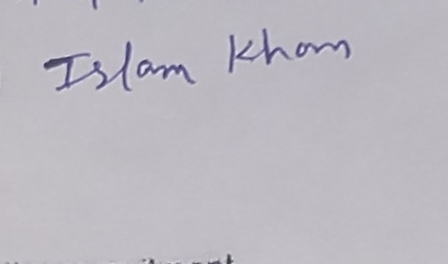 Islam Khan